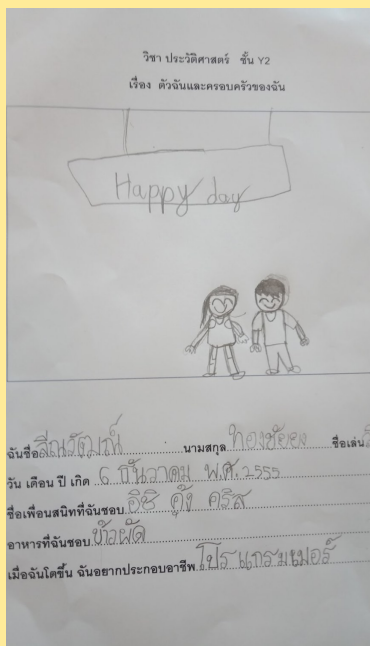 วิชา ประวัติศาสตร์ ชั้น Y2
เรื่อง ตัวฉันและครอบครัวของฉัน
Happy day
ฉันชื่อ นามสกุล ชื่อเล่น
วัน เดือน ปี เกิด 6 ธันวาคม พ.ศ. 2555
ชื่อเพื่อนสนิทที่ฉันชอบ อิชิ อุ้ง คริส
อาหารที่ฉันชอบ ข้าวผัด
เมื่อฉันโตขึ้น ฉันอยากประกอบอาชีพ โปรแกรมเมอร์